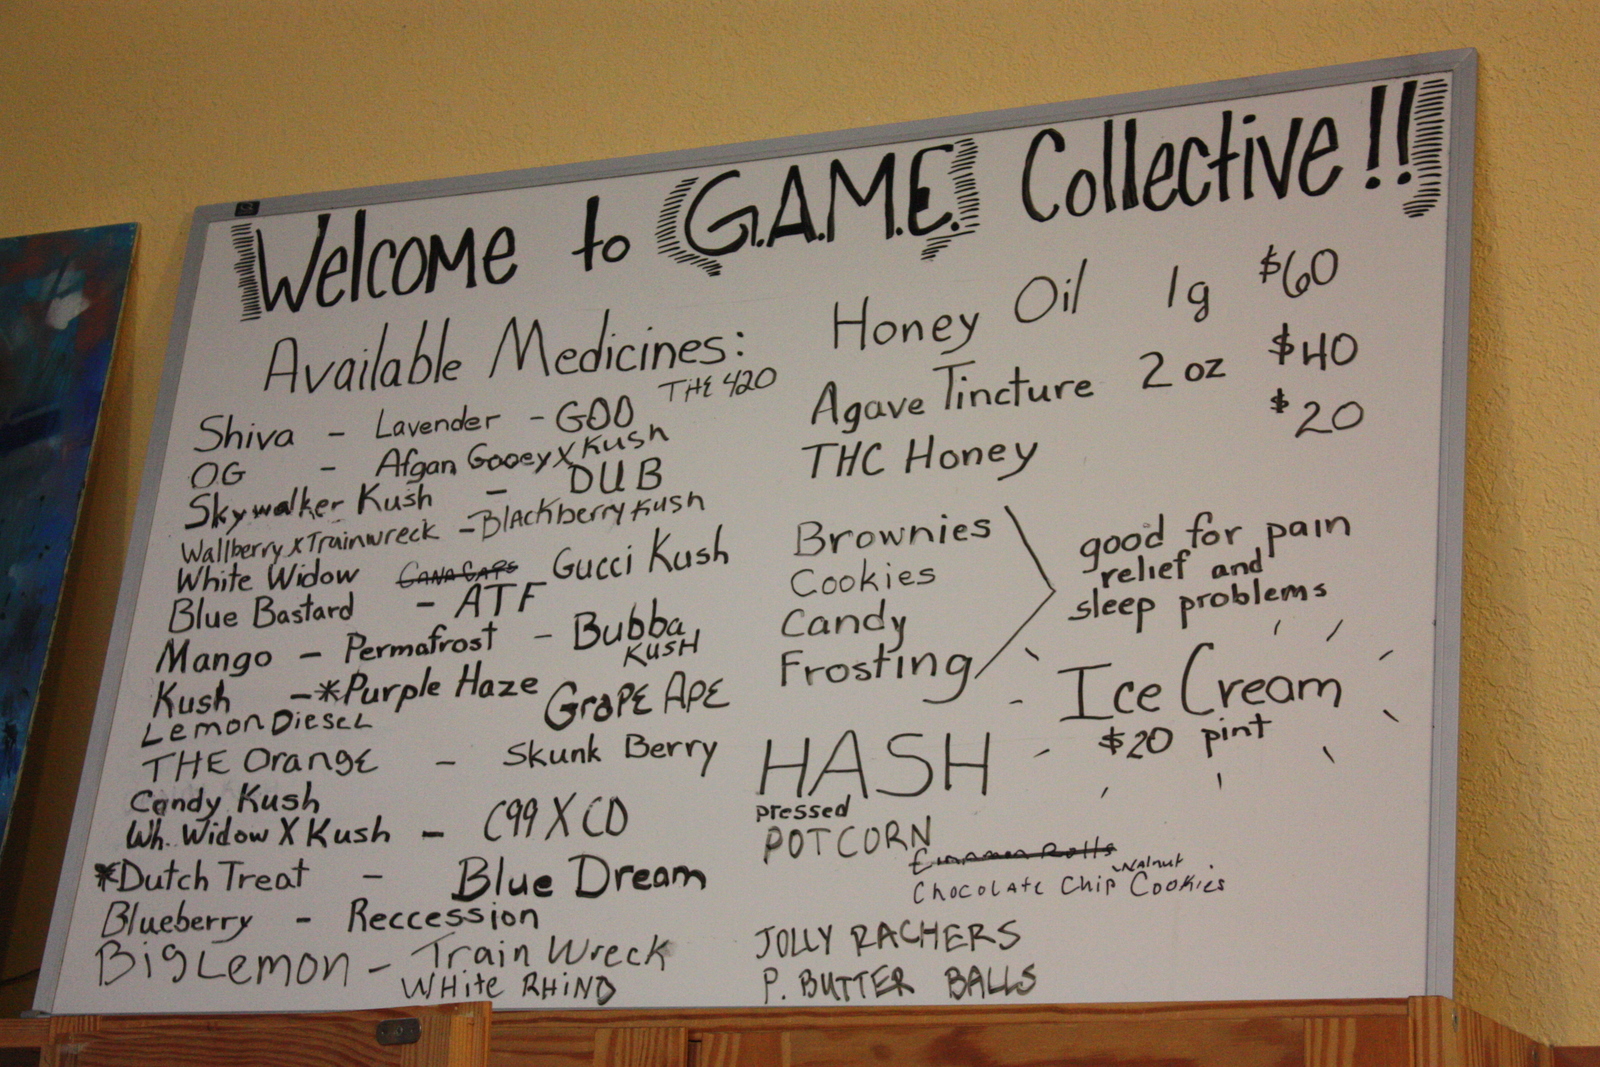 Welcome to G.A.M.E. Collective!!
Available Medicines:
THE 420
Shiva - Lavender - GOO
OG - Afgan Gooey X Kush
Skywalker Kush - DUB
Wallberry x Trainwreck - Blackberry Kush
White Widow CANA CAPS Gucci Kush
Blue Bastard - ATF
Mango - Permafrost - Bubba
KUSH
Kush - *Purple Haze
GRAPE APE
LEMON DIESEL
THE Orange - Skunk Berry
Candy Kush
Wh. Widow X Kush - C99 X CD
*Dutch Treat - Blue Dream
Blueberry - Reccession
Big Lemon - Train Wreck
WHite RHINO
Honey Oil 1g $60
Agave Tincture 2 oz $40
THC Honey $20
Brownies
Cookies
Candy
Frosting
good for pain
relief and
sleep problems
Ice Cream
$20 pint
HASH
pressed
POTCORN
Cinnamon Rolls
Walnut
Chocolate Chip Cookies
JOLLY RACHERS
P. BUTTER BALLS